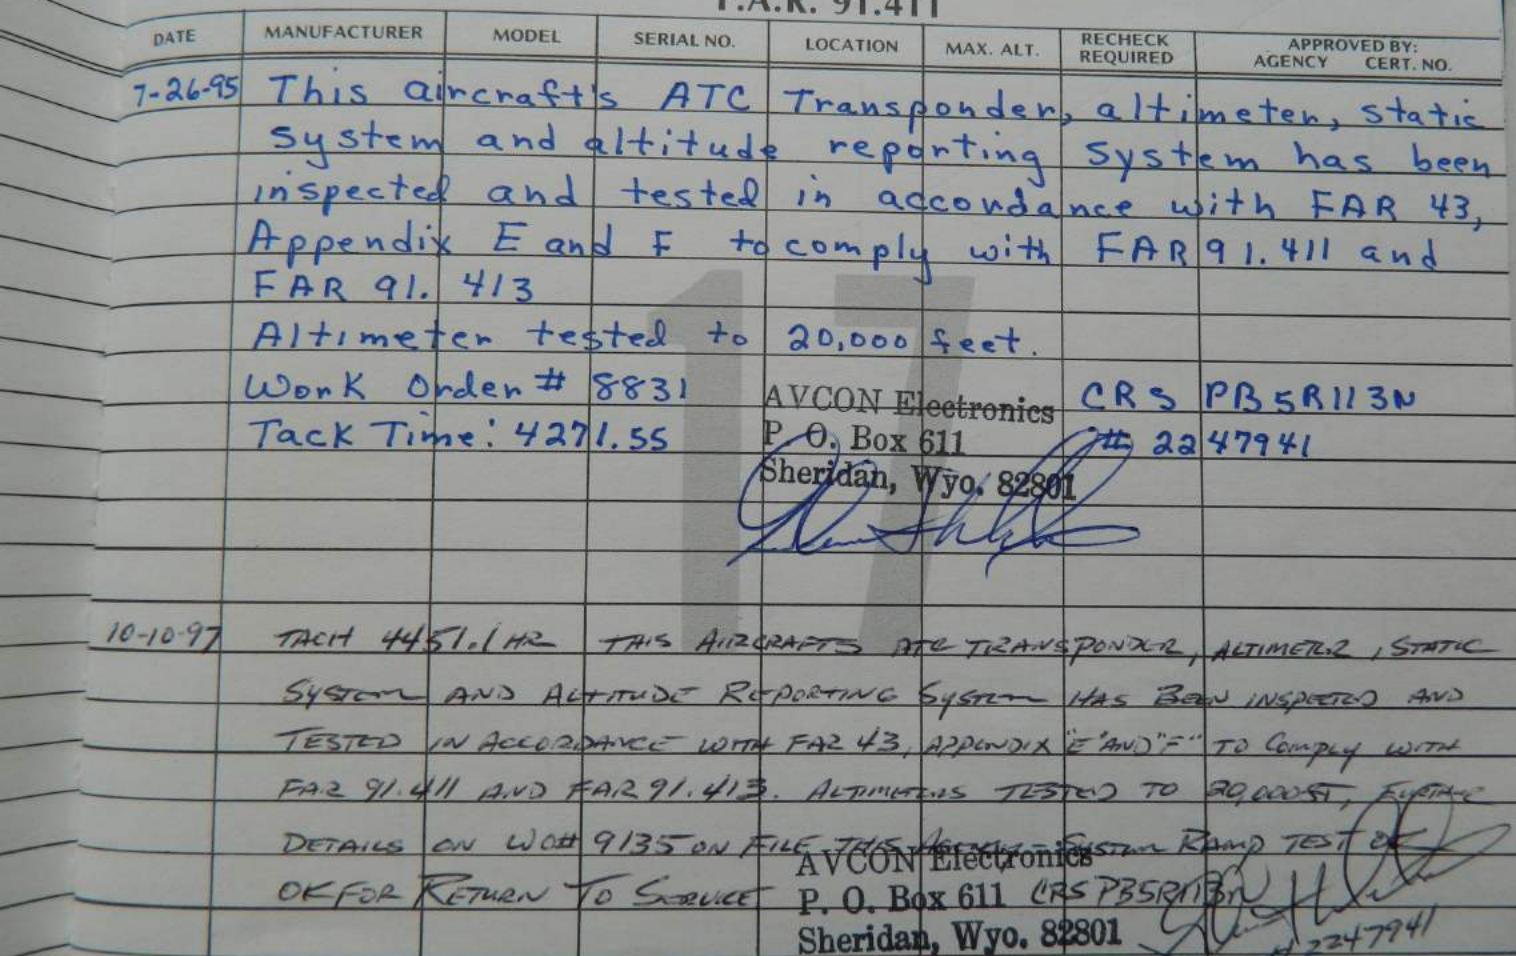 F.A.R. 91.411
DATE MANUFACTURER MODEL SERIAL NO. LOCATION MAX. ALT. RECHECK REQUIRED APPROVED BY: AGENCY CERT. NO.
7-26-95 This aircraft's ATC Transponder, altimeter, static
system and altitude reporting system has been
inspected and tested in accordance with FAR 43,
Appendix E and F to comply with FAR 91.411 and
FAR 91.413
Altimeter tested to 20,000 feet.
Work Order # 8831 AVCON Electronics CRS PB5R113N
Tack Time: 4271.55 P. O. Box 611 # 2247941
Sheridan, Wyo. 82801
17
10-10-97 TACH 4451.1 HR THIS AIRCRAFTS ATC TRANSPONDER, ALTIMETER, STATIC
SYSTEM AND ALTITUDE REPORTING SYSTEM HAS BEEN INSPECTED AND
TESTED IN ACCORDANCE WITH FAR 43, APPENDIX "E" AND "F" TO COMPLY WITH
FAR 91.411 AND FAR 91.413. ALTIMETERS TESTED TO 20,000 FT, FURTHER
DETAILS ON WO# 9135 ON FILE THIS SYSTEM RAMP TEST OK
AVCON Electronics
OK FOR RETURN TO SERVICE P. O. Box 611 CRS PB5R113N
Sheridan, Wyo. 82801 # 2247941